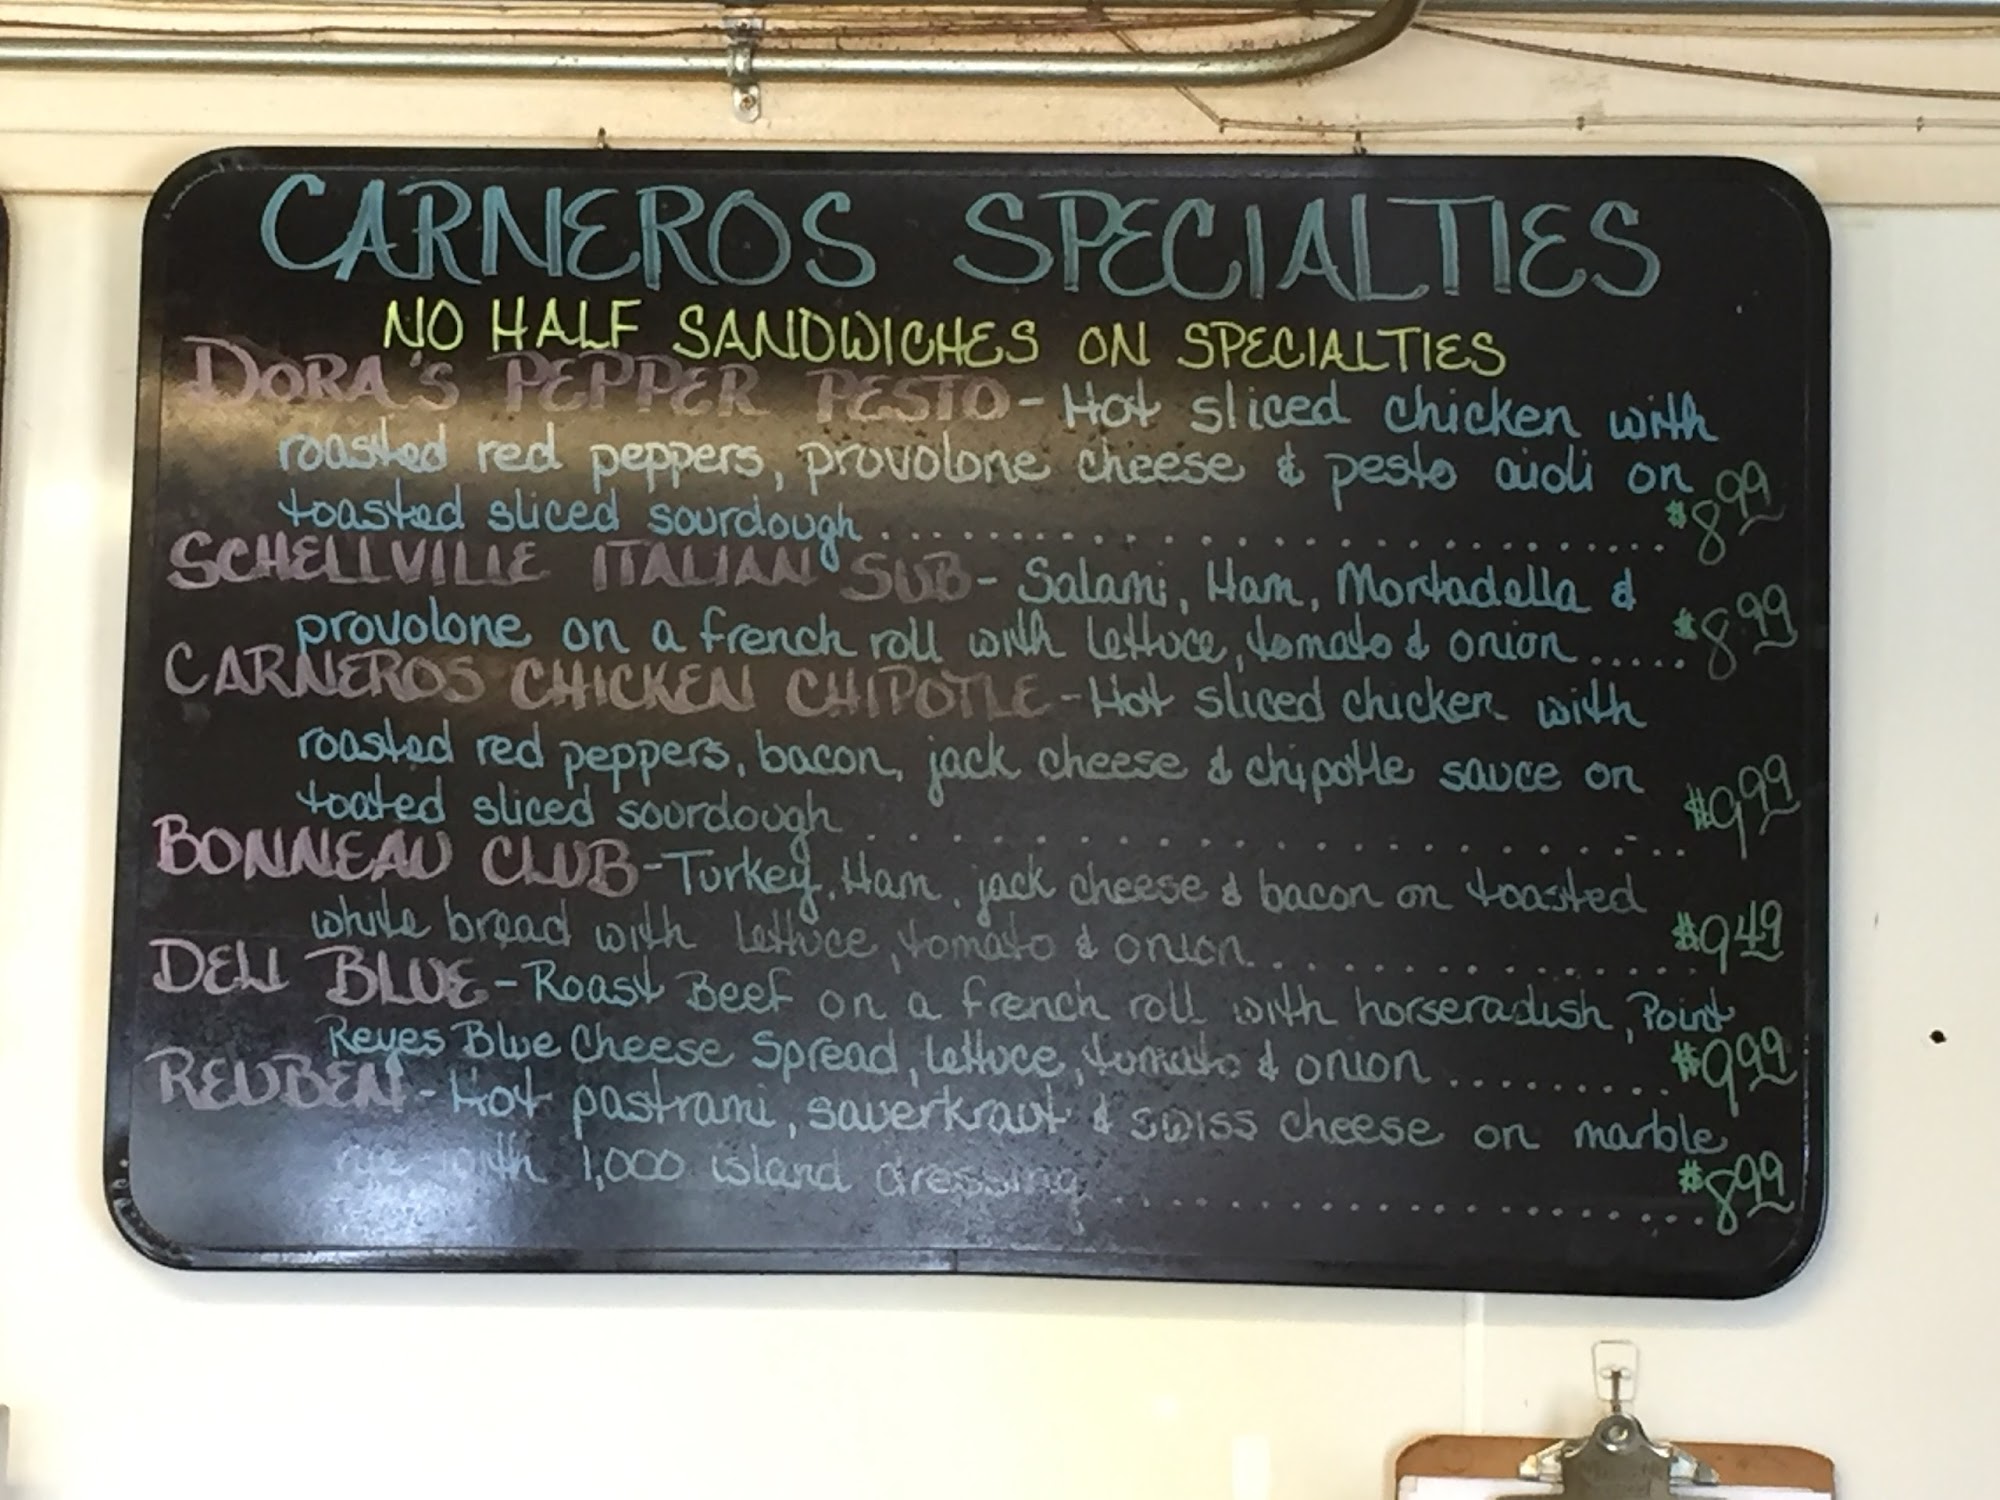 CARNEROS SPECIALTIES
NO HALF SANDWICHES ON SPECIALTIES
DORA'S PEPPER PESTO - Hot sliced chicken with
roasted red peppers, provolone cheese & pesto aioli on
toasted sliced sourdough .......... $8.99
SCHELLVILLE ITALIAN SUB - Salami, Ham, Mortadella &
provolone on a french roll with lettuce, tomato & onion ..... $8.99
CARNEROS CHICKEN CHIPOTLE - Hot sliced chicken with
roasted red peppers, bacon, jack cheese & chipotle sauce on
toated sliced sourdough .......... $9.99
BONNEAU CLUB - Turkey, Ham, jack cheese & bacon on toasted
white bread with lettuce, tomato & onion .......... $9.49
DELI BLUE - Roast Beef on a french roll with horseradish, Point
Reyes Blue Cheese Spread, lettuce, tomato & onion ......... $9.99
REUBEN - Hot pastrami, sauerkraut & swiss cheese on marble
rye with 1,000 island dressing .......... $8.99